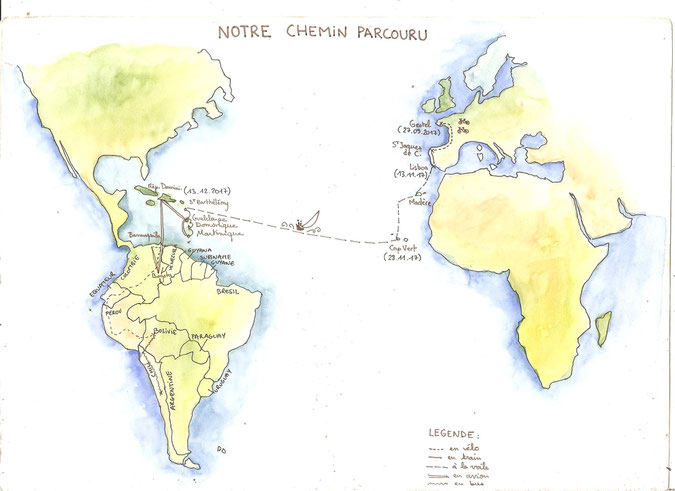 NOTRE CHEMIN PARCOURU
Gestel
(27.09.2017)
St Jaques
de C.
Lisboa
(13.11.17)
Madère
Cap Vert
(28.11.17)
Rép. Domini.
(13.12.2017)
St Barthélémy
Guadeloupe
Dominique
Martinique
Barranquilla
GUYANA
SURINAME
GUYANE
VENEZUELA
COLOMBIE
EQUATEUR
BRESIL
PEROU
BOLIVIE
PARAGUAY
CHILI
ARGENTINE
URUGUAY
PO
LEGENDE:
en vélo
en train
à la voile
en avion
en bus